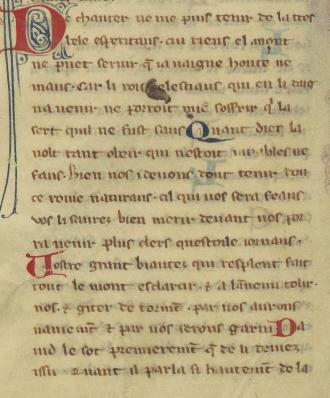 De chanter ne me puis tenir de la tres
bele esperitaus. cui riens el mont
ne puet seruir q̃ ia uaigne honte ne
maus. Car li rois celestiaus qui en li deig
na uenir ne porroit mie soffrir q̃ la
sert quil ne fust saus Quant diex la
uolt tant oneir qui nestoit ne
faus. bien nos i deuons donc tenir don
ce roine naturaus. cil qui uos sera feaus
vos li saurez bien merir deuant uos por
ra uenir plus clers questoile iornaus.
Vostre grant biautez qui resplent fait
tout le mont esclarar. &
nos. & giter de torm̃t. par uos aurons
& par uos serons garni Da
uid le sot premierem̃t q̃ de li deuiez
issir Quant il parla si hautem̃t de la